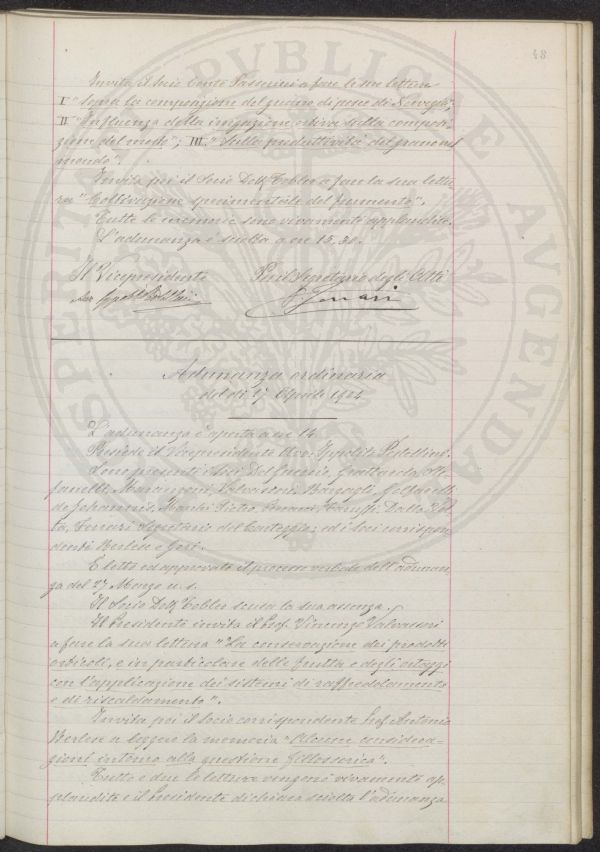 48
Invita il Socio Conte Passerini a fare le sue letture
I° "Sopra la composizione del guano di pesce di Norvegia";
II° "Influenza della irrigazione estiva sulla composi-
zione del mosto"; III° "Sulla produttività del grano nel
mondo".
Invita poi il Socio Dott. Tobler a fare la sua lettu-
ra "Coltivazione sperimentale del frumento".
Tutte le memorie sono vivamente applaudite.
L'adunanza è sciolta a ore 15.30.
Il Vicepresidente
Pel Segretario degli Atti
Ferrari
Adunanza ordinaria
del dì 17 Aprile 1904
L'adunanza è aperta a ore 14.
Presiede il Vicepresidente Avv. Ippolito Pestellini.
Sono presenti i Soci Del Guercio,
fanelli, Marconi, Valvassori, Bargagli,
de Johannis, Pietro, Dalla Vol-
ta, Ferrari Segretario del Carteggio; ed i Soci corrispon-
denti Berlese e Geri.
È letto ed approvato il processo verbale dell'adunan-
za del 27 Marzo u. s.
Il Socio Dott. Tobler scusa la sua assenza.
Il Presidente invita il Prof. Vincenzo Valvassori
a fare la sua lettura "La conservazione dei prodotti
orticoli, e in particolare delle frutta e degli ortaggi
con l'applicazione dei sistemi di raffreddamento
e di riscaldamento".
Invita poi il Socio corrispondente Prof. Antonio
Berlese a leggere la memoria "Alcune considera-
zioni intorno alla questione fillosserica".
Tutte e due le letture vengono vivamente ap-
plaudite e il Presidente dichiara sciolta l'adunanza
PVBLICAE
PROSPERITATI
AVGENDAE